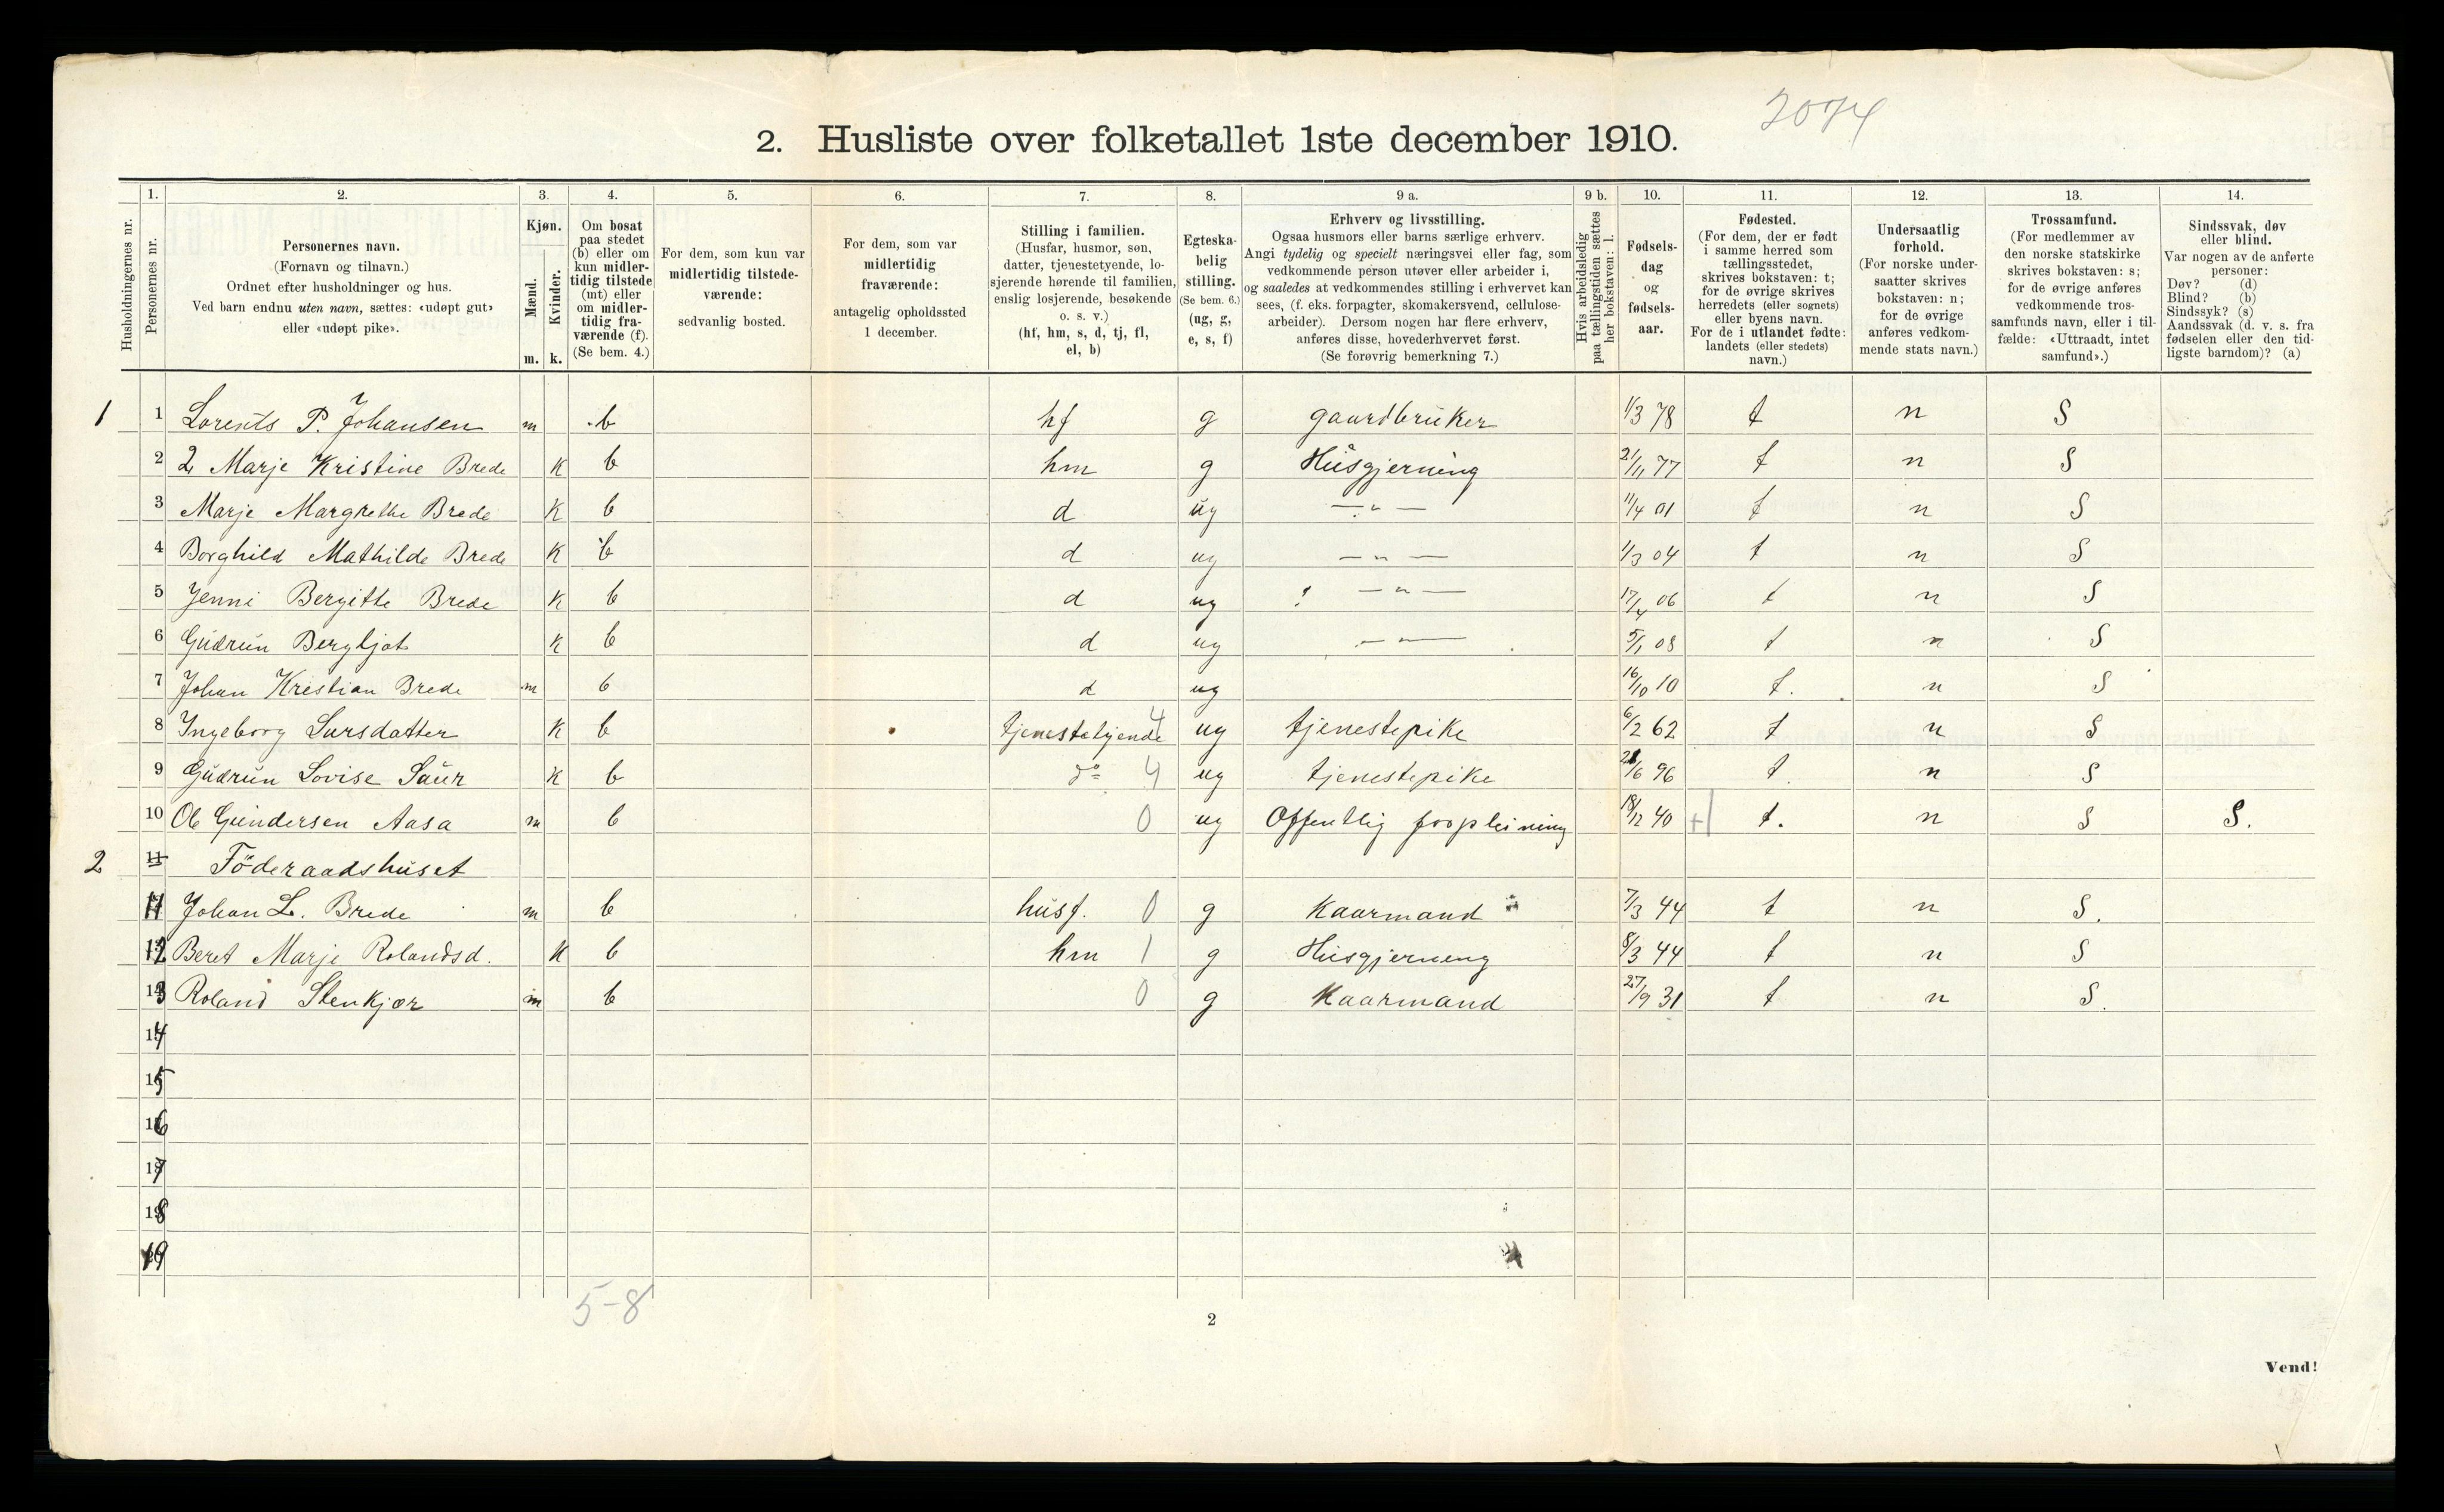 2074
2. Husliste over folketallet 1ste december 1910.
Husholdningernes nr.
1.
Personernes nr.
2.
Personernes navn.
(Fornavn og tilnavn.)
Ordnet efter husholdninger og hus.
Ved barn endnu uten navn, sættes: «udøpt gut»
eller «udøpt pike».
3.
Kjøn.
Mænd.
Kvinder.
m. k.
4.
Om bosat
paa stedet
(b) eller om
kun midler-
tidig tilstede
(mt) eller
om midler-
tidig fra-
værende (f).
(Se bem. 4.)
5.
For dem, som kun var
midlertidig tilstede-
værende:
sedvanlig bosted.
6.
For dem, som var
midlertidig
fraværende:
antagelig opholdssted
1 december.
7.
Stilling i familien.
(Husfar, husmor, søn,
datter, tjenestetyende, lo-
sjerende hørende til familien,
enslig losjerende, besøkende
o. s. v.)
(hf, hm, s, d, tj, fl,
el, b)
8.
Egteska-
belig
stilling.
(Se bem. 6.)
(ug, g,
e, s, f)
9 a.
Erhverv og livsstilling.
Ogsaa husmors eller barns særlige erhverv.
Angi tydelig og specielt næringsvei eller fag, som
vedkommende person utøver eller arbeider i,
og saaledes at vedkommendes stilling i erhvervet kan
sees, (f. eks. forpagter, skomakersvend, cellulose-
arbeider). Dersom nogen har flere erhverv,
anføres disse, hovederhvervet først.
(Se forøvrig bemerkning 7.)
9 b.
Hvis arbeidsledig
paa tællingstiden sættes
her bokstaven: l.
10.
Fødsels-
dag
og
fødsels-
aar.
11.
Fødested.
(For dem, der er født
i samme herred som
tællingsstedet,
skrives bokstaven: t;
for de øvrige skrives
herredets (eller sognets)
eller byens navn.
For de i utlandet fødte:
landets (eller stedets)
navn.)
12.
Undersaatlig
forhold.
(For norske under-
saatter skrives
bokstaven: n;
for de øvrige
anføres vedkom-
mende stats navn.)
13.
Trossamfund.
(For medlemmer av
den norske statskirke
skrives bokstaven: s;
for de øvrige anføres
vedkommende tros-
samfunds navn, eller i til-
fælde: «Uttraadt, intet
samfund».)
14.
Sindssvak, døv
eller blind.
Var nogen av de anførte
personer:
Døv? (d)
Blind? (b)
Sindssyk? (s)
Aandssvak (d. v. s. fra
fødselen eller den tid-
ligste barndom)? (a)
1 1 Lorents P. Johansen m b hf g gaardbruker 1/3 78 t n S
2 2 Marje Kristine Brede k b hm g Husgjerning 21/11 77 t n S
3 Marje Margrethe Brede k b d ug —"— 11/4 01 t n S
4 Borghild Mathilde Brede k b d ug —"— 1/3 04 t n S
5 Jenni Bergitte Brede k b d ug —"— 17/4 06 t n S
6 Gudrun Bergljot k b d ug —"— 5/1 08 t n S
7 Johan Krestian Brede m b d ug 16/10 10 t. n S
8 Ingeborg Lursdatter k b tjenestetyende 4 ug tjenestepike 6/2 62 t n S
9 Gudrun Lovise Saur k b do 4 ug tjenestepike /6 96 t. n S
10 Ole Gundersen Aasa m b 0 ug Offentlig forpleining 18/12 40 t. n S S.
2 11 Föderaadshuset
11 Johan L. Brede m b husf. 0 g Kaarmand 7/3 44 t n S.
12 Beret Marje Rolandsd. k b hm 1 g Husgjerneng 8/3 44 t n S
13 Roland Stenkjær m b 0 g Kaarmand 27/9 31 t n S.
14
15
16
17
18
19
5-8
2
Vend!